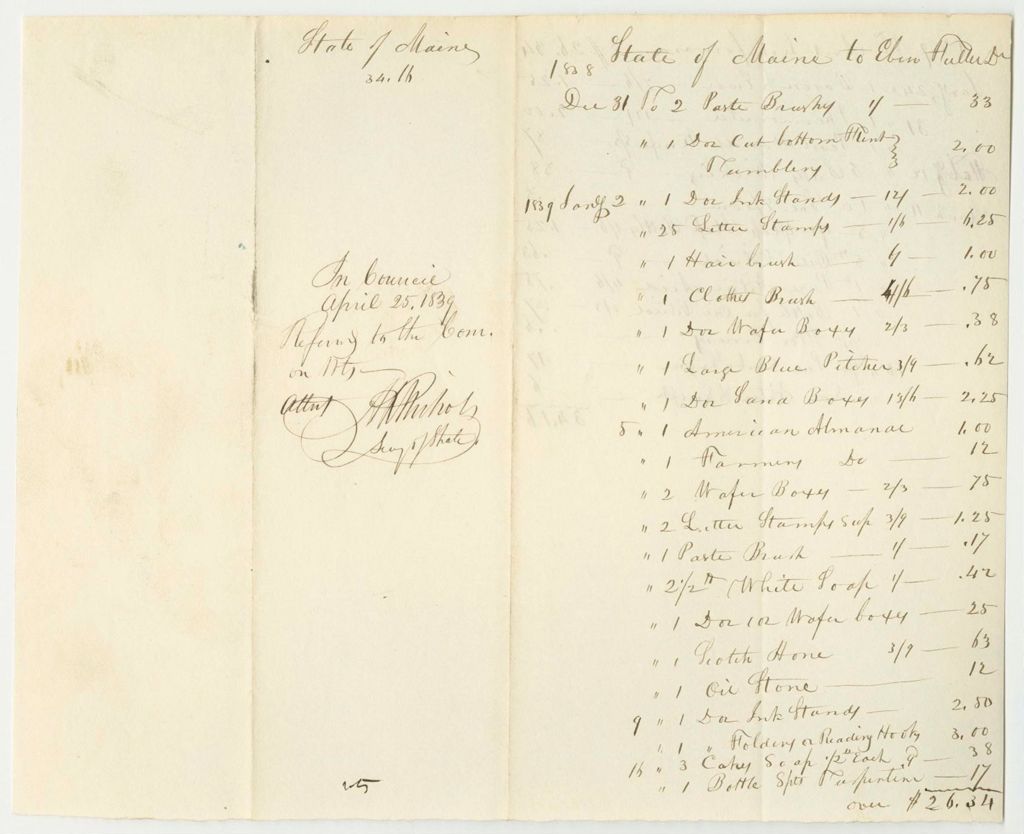 State of Maine
34.16
In Council
April 25. 1839
Referred to the Com.
on Accts
Attest
Nichols
Secy of State
25
State of Maine to Eben Fuller Dr
1838
Dec 31 To 2 Paste Brushes 1/ — 33
" 1 Doz Cut bottom Flint
Tumblers } 2.00
1839 Jany 2 " 1 Doz Ink Stands — 12/ — 2.00
" 25 Letter Stamps — 1/6 — 6.25
" 1 Hair brush 6/ — 1.00
" 1 Clothes Brush — 4/6 — .75
" 1 Doz Wafer Boxes 2/3 — .38
" 1 Large Blue Pitcher 3/9 — .62
" 1 Doz Sand Boxes 13/6 — 2.25
5 " 1 American Almanac 1.00
" 1 Farmers Do — 12
" 2 Wafer Boxes — 2/3 — 75
" 2 Letter Stamps Sup 3/9 — 1.25
" 1 Paste Brush — 1/ — .17
" 2 1/2 lb White Soap 1/ — .42
" 1 Doz Wafer boxes — 25
" 1 Scotch Hone 3/9 — 63
" 1 Oil Stone — 12
9 " 1 Doz Ink Stands — 2.50
" 1 " Folders or Reading Hooks 3.00
16 " 3 Cakes Soap 1/2 lb Each 9 — 38
" 1 Bottle Spts Turpentine — 17
over $26.34